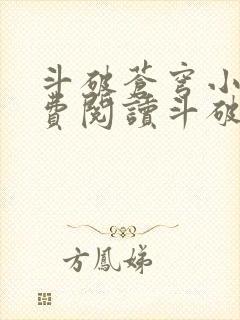 斗破蒼穹小
費閱讀斗破
方鳳娣